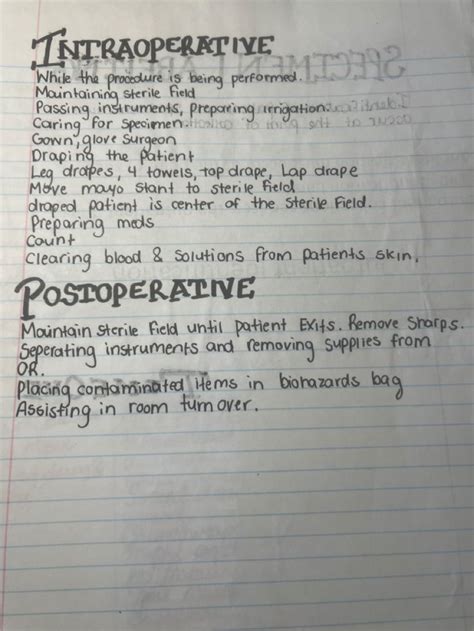 INTRAOPERATIVE
While the procedure is being performed.
Maintaining sterile field
Passing instruments, preparing irrigation.
Caring for specimen.
Gown, glove surgeon
Draping the patient
Leg drapes, 4 towels, top drape, Lap drape
Move mayo stant to sterile field
draped patient is center of the sterile field.
Preparing meds
Count
Clearing blood & solutions from patients skin.
POSTOPERATIVE
Maintain sterile field until patient Exits. Remove Sharps.
Seperating instruments and removing supplies from
OR.
Placing contaminated items in biohazards bag
Assisting in room turnover.